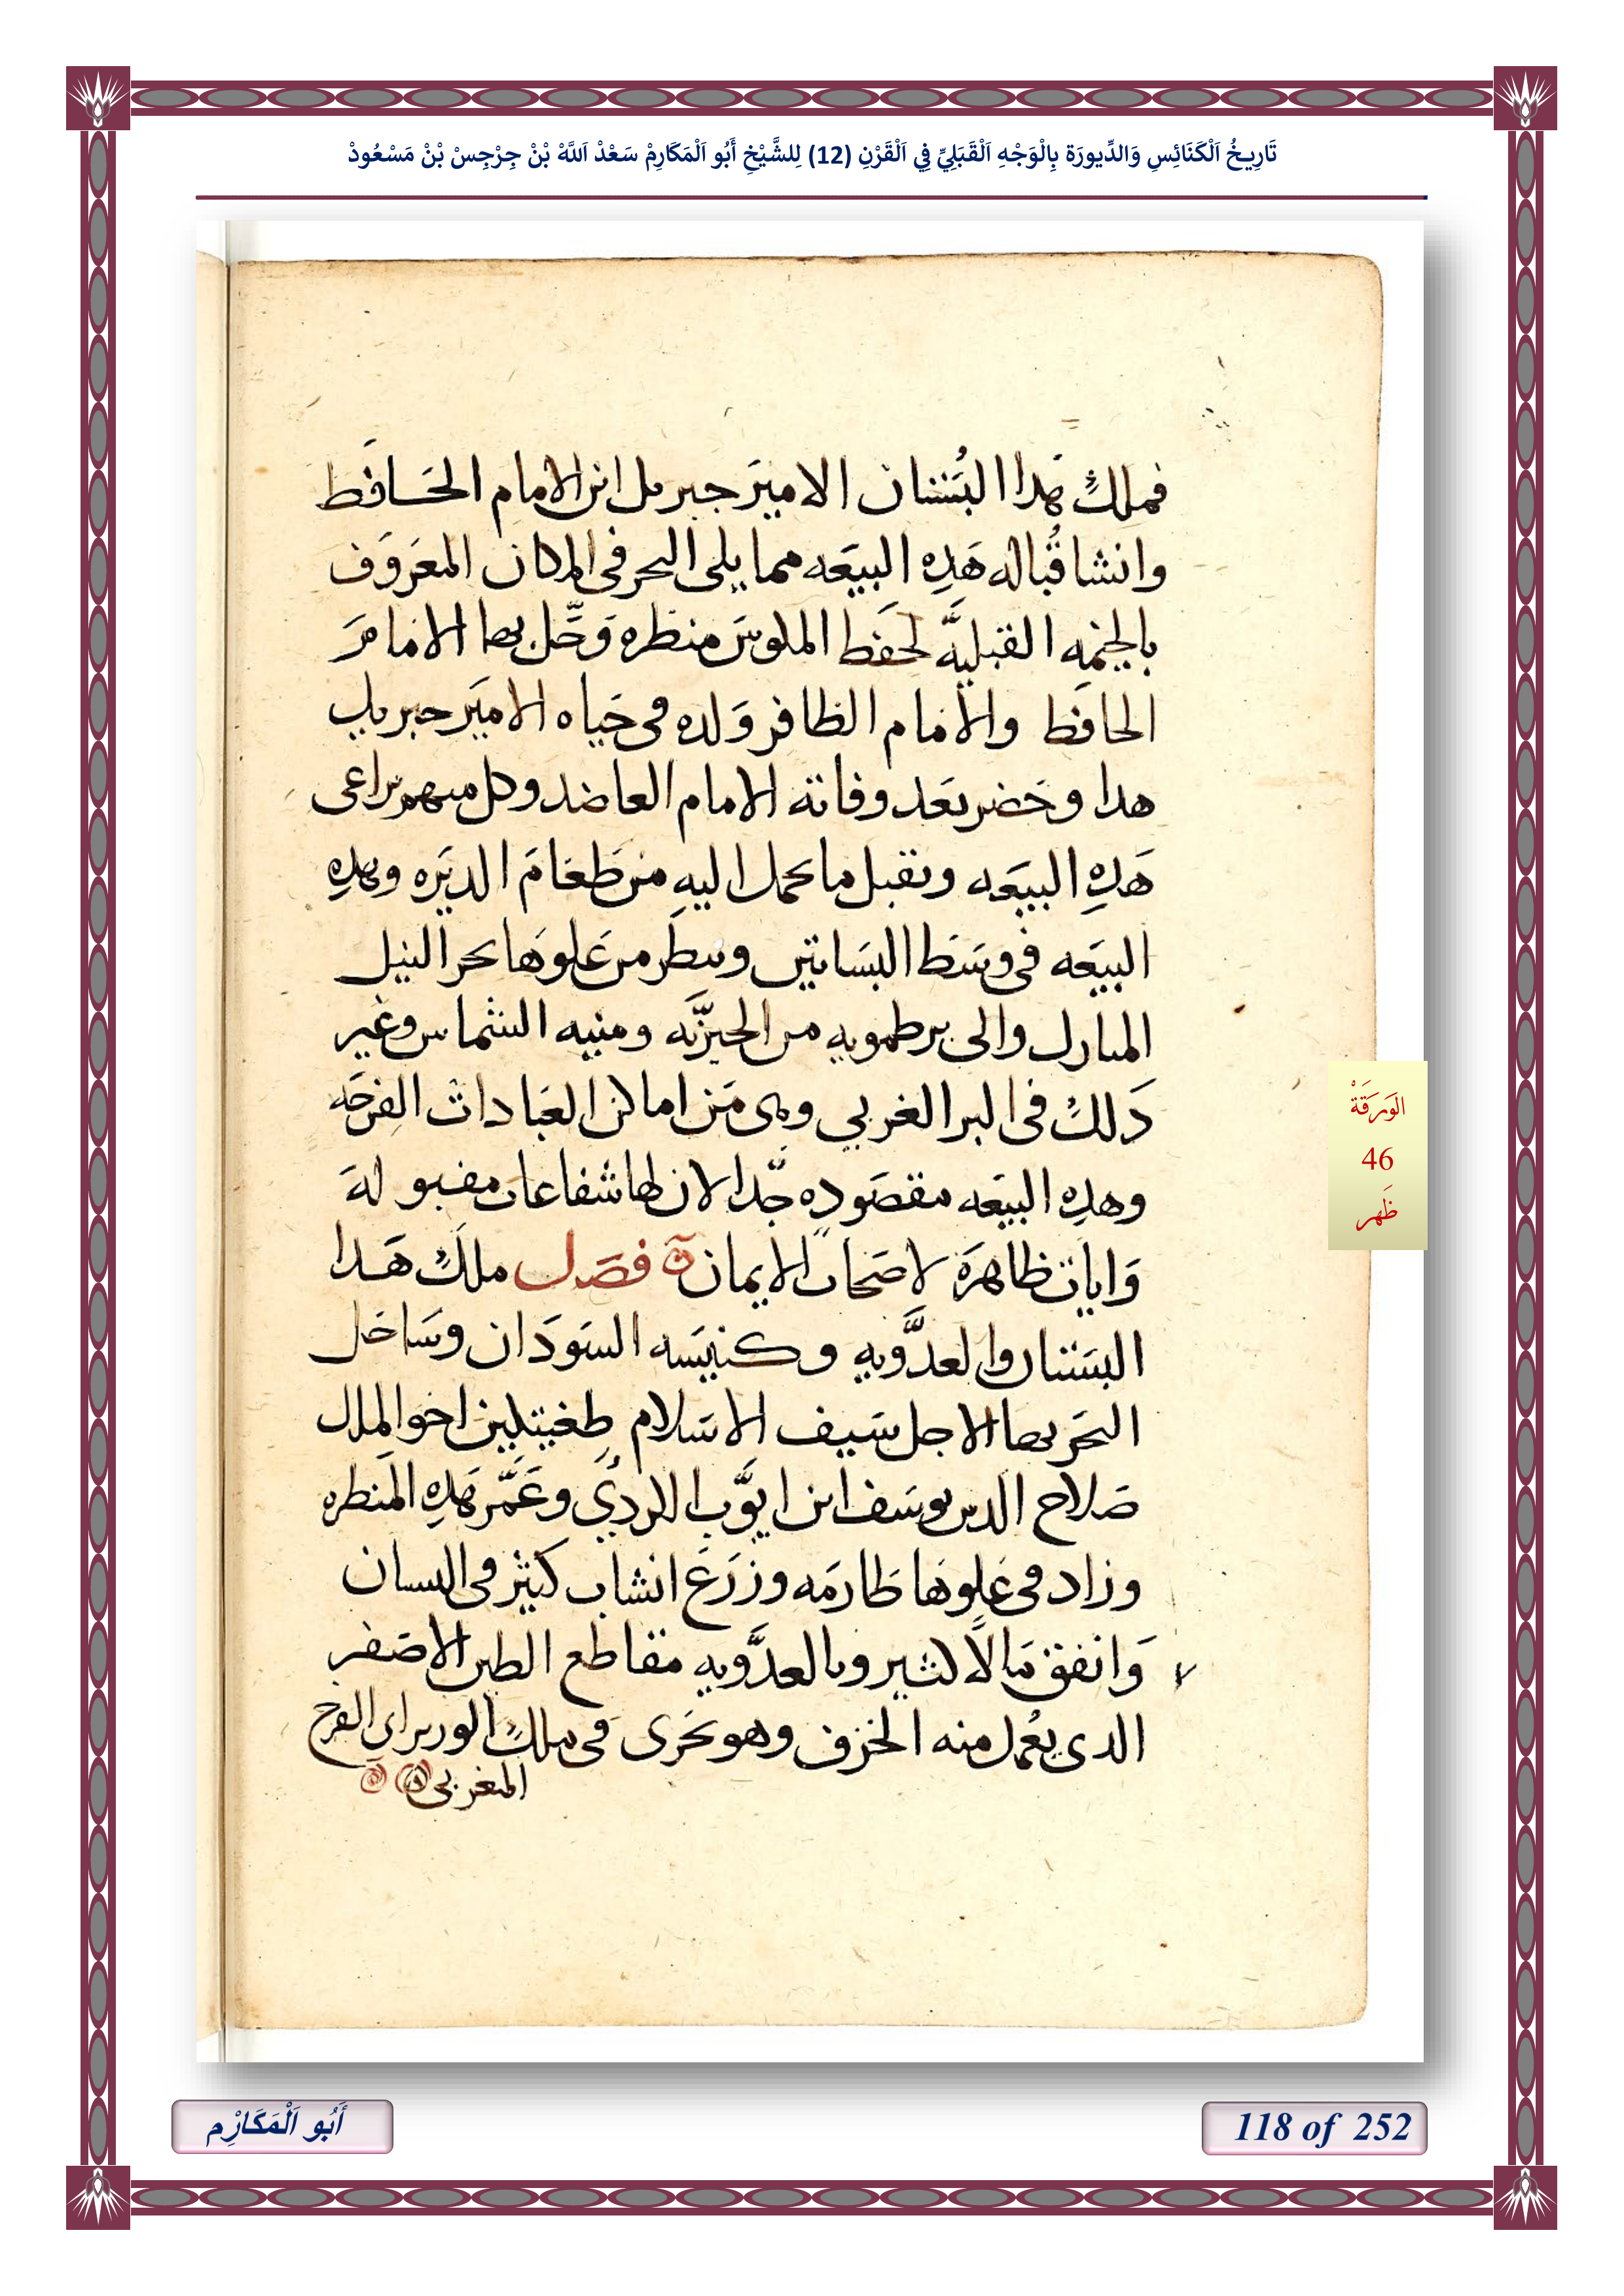 تَارِيخُ اَلْكَنَائِسِ وَالدِّيورَة بِالْوَجْهِ اَلْقَبَلِيِّ فِي اَلْقَرْنِ (12) لِلشَّيْخِ أَبُو اَلْمَكَارِمْ سَعْدْ اَللَّهْ بْنْ جِرْجِسْ بْنْ مَسْعُودْ
فملك هدا البُستان الامير جبريل ابن الامام الحافظ
وانشا قُباله هَدِه البيعَه مما يلى البحر فى المكان المعَروَف
بالخيمه القبليَّه لحفظ الملوس منظره وَحَّل بها الامام
الحافظ والامام الظافر وَلده فى حَياه الامير جبريل
هدا وحَضر بَعد وفاته الامام العاضد وكل منهم يراعى
هَدِه البيعَه ويقبل ما يحمل اليهِ من طَعامَ الديَره وهدِه
البيعَه فى وسَط البسَاتين وينظر من عَلوهَا بحر النيل
المبارك والى برطمويه من الجيزَّه ومنيه الشماس وغير
دَلكْ فى البر الغربي وهى مَن اماكن العَبادات الفرحَه
وهدِه البيعَه مقصَوده جّدا لان لها شفاعات مقبولهَ
وَايات ظاهرَة لاصحَاب الايمان ۞ فصَل ملَك هَدا
البسَتان والعدَّويه وكنيسَه السَودَان وسَاحَل
البحَر بها الاجل سَيف الاسَلام طِغيتكين اخو الملك
صَلاح الدين يوسَف ابن ايوَّب الكردىُ وعَمَّر هَدِه المنظره
وزاد فى عَلوهَا طَارمَه وزَرَع انشاب كثير فى البستان
وَانفق مَالاً كثير وبالعدَّويه مقاطع الطين الاصَفر
الدى يعُمل منه الخزف وهو يجَرى فى ملك الوزير ابى الفرج
المغربى ۞ ۞
الوَرَقَةْ
46
ظَهر
أَبُو اَلْمَكَارِْم
118 of 252